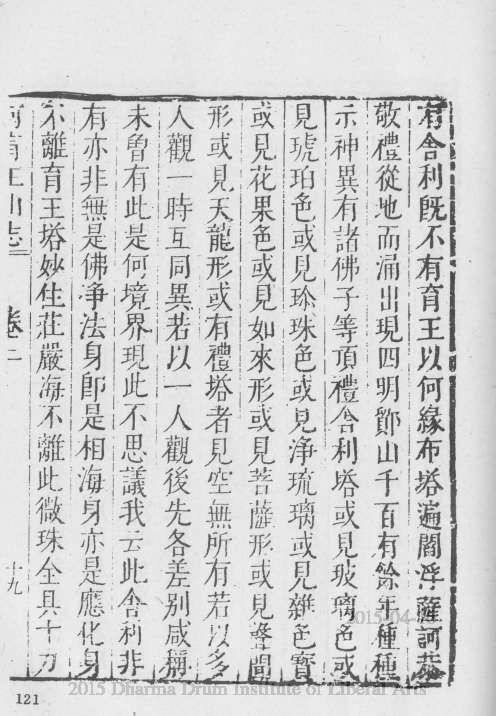 有舍利既不有育王以何緣布塔遍閻浮薩訶
敬禮從地而涌出現四明鄮山千百有餘年種種
示神異有諸佛子等頂禮舍利塔或見玻璃色或
見琥珀色或見珍珠色或見淨琉璃或見雜色寶
或見花果色或見如來形或見菩薩形或見聲聞
形或見天龍形或有禮塔者見空無所有若以多
人觀一時互同異若以一人觀後先各差別咸稱
未曾有此是何境界現此不思議我云此舍利非
有亦非無是佛淨法身即是相海身亦是應化身
不離育王塔妙住莊嚴海不離此微珠全具十方
阿育王山志 卷二 十九
121
2015 Dharma Drum Institute of Liberal Arts
2015-04-